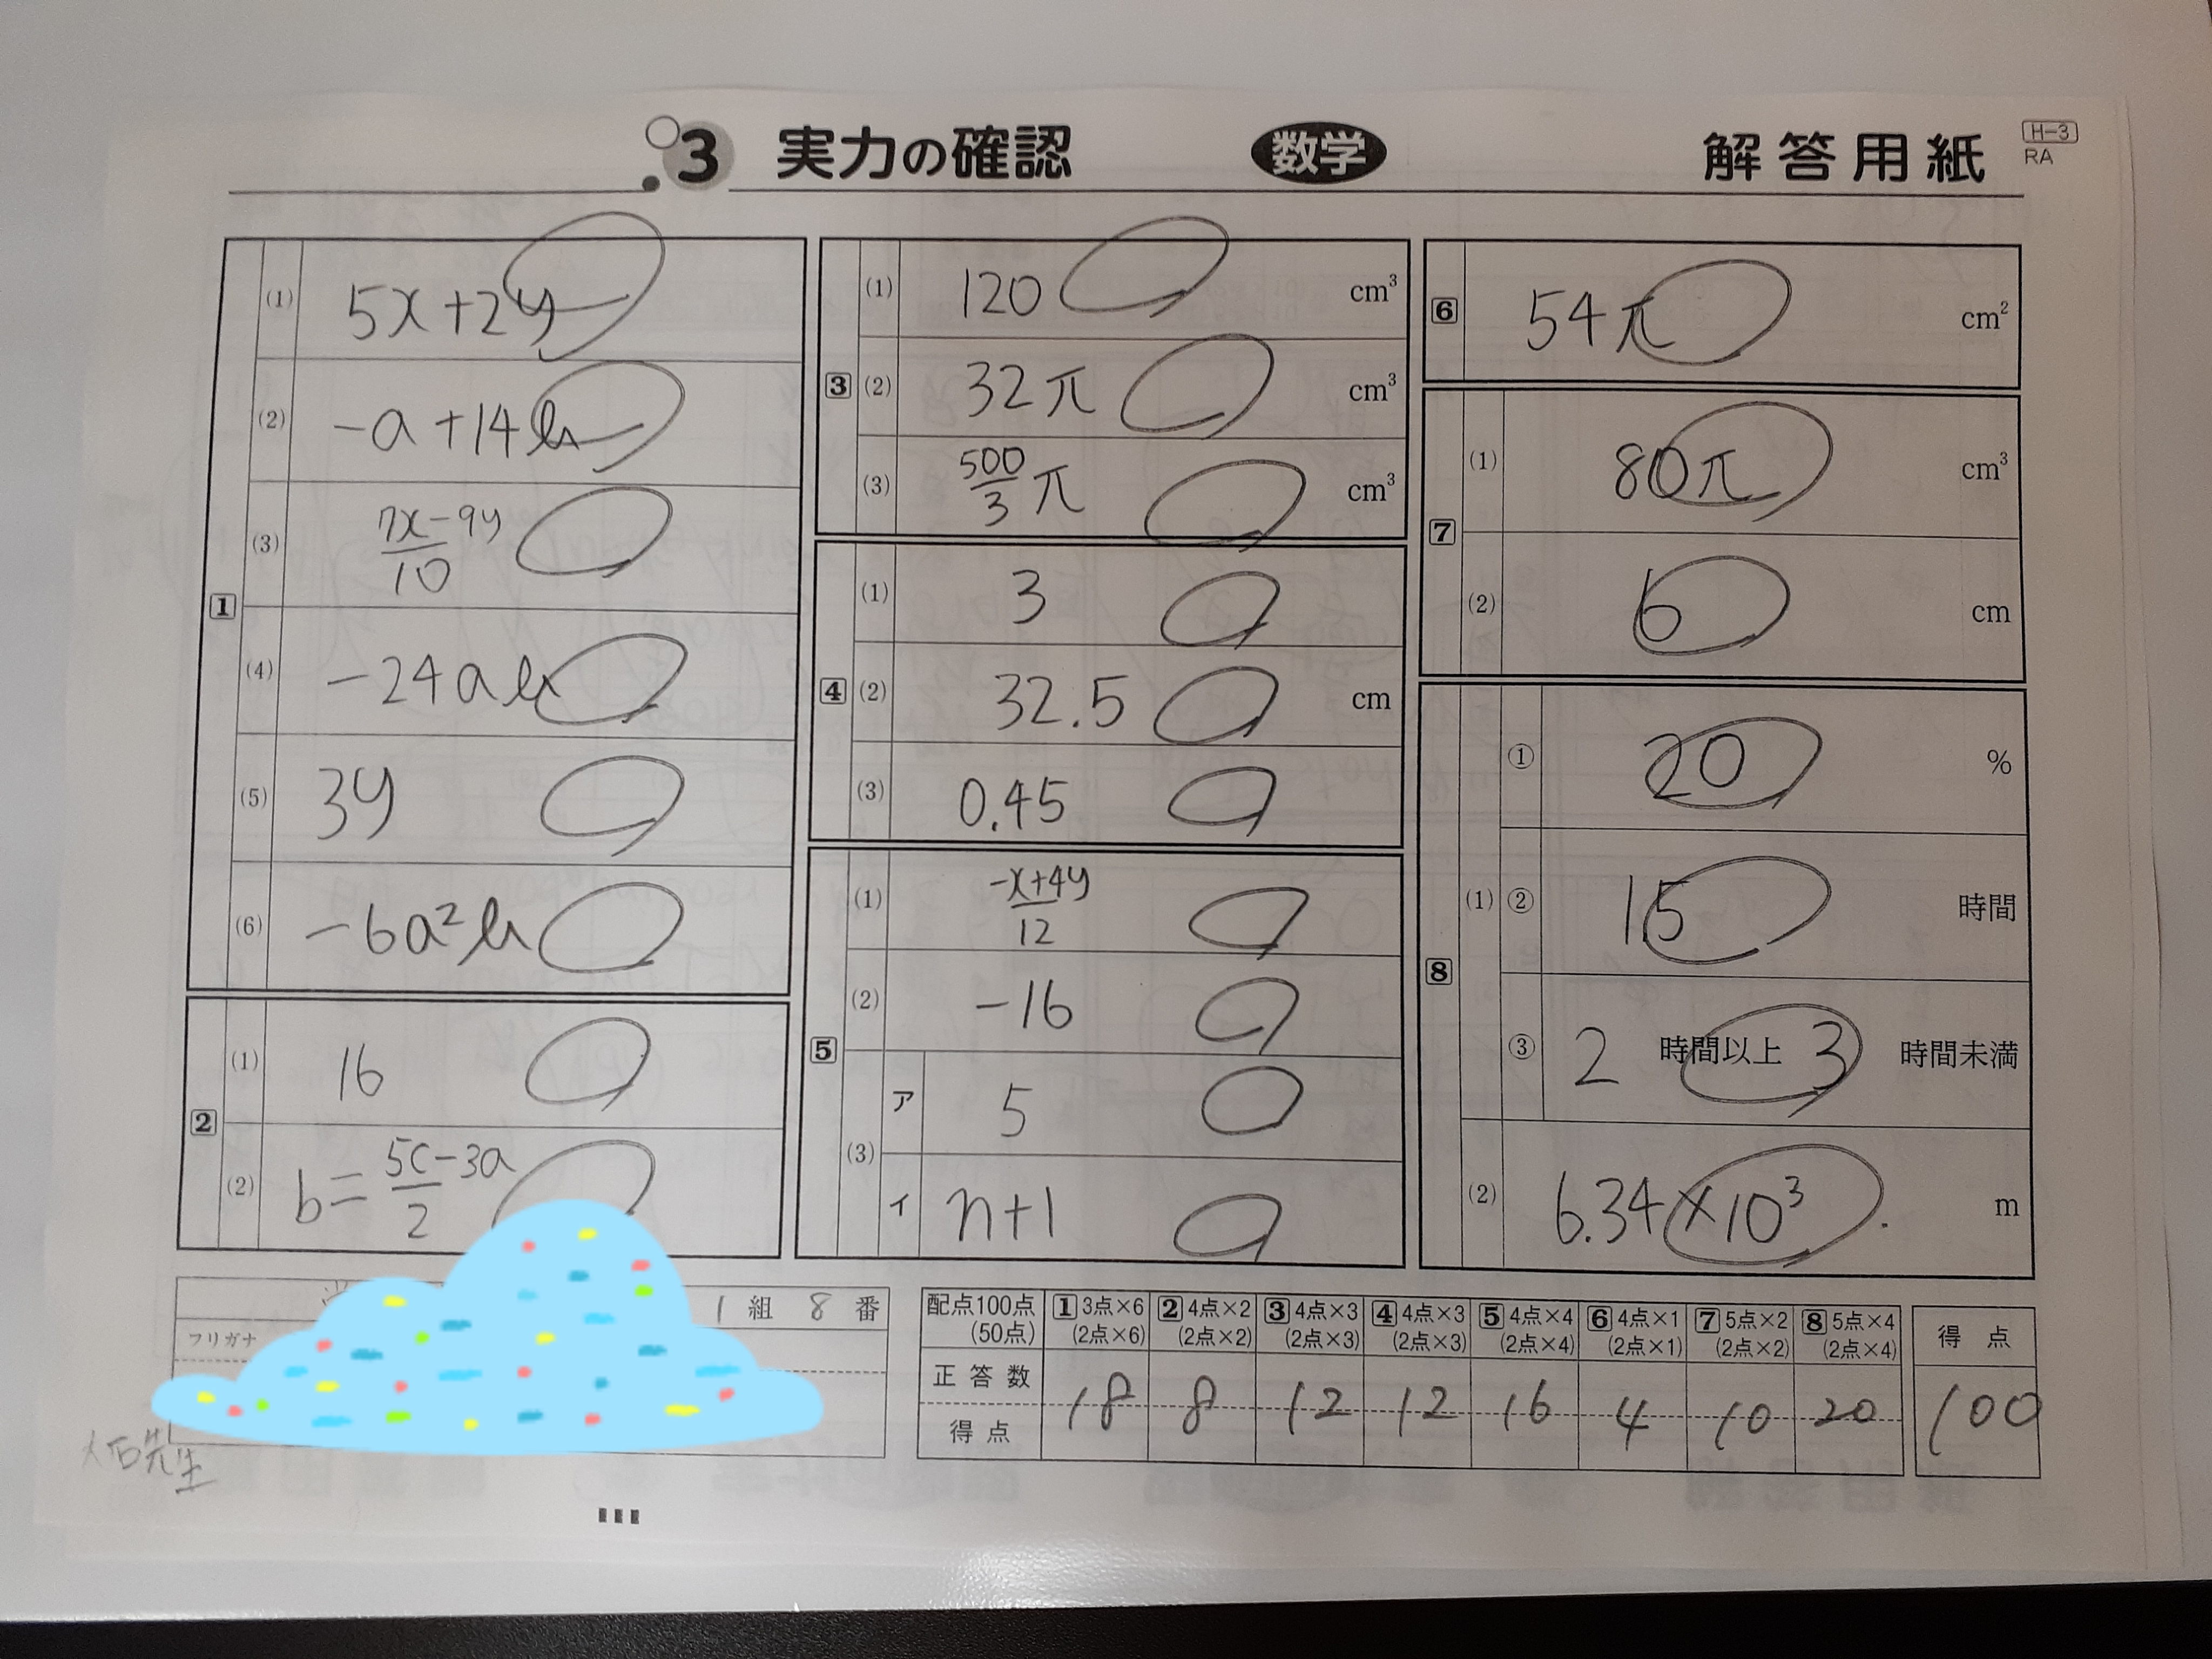 3 実力の確認 数学 解答用紙 H-3
RA
1
(1) 5x+2y
(2) -a+14b
(3) 7x-9y/10
(4) -24ab
(5) 3y
(6) -6a²b
2
(1) 16
(2) b=5c-3a/2
3
(1) 120 cm³
(2) 32π cm³
(3) 500/3 π cm³
4
(1) 3
(2) 32.5 cm
(3) 0.45
5
(1) -x+4y/12
(2) -16
(3) ア 5
イ n+1
6
54π cm²
7
(1) 80π cm³
(2) 6 cm
8
(1) ① 20 %
② 1.5 時間
③ 2 時間以上 3 時間未満
(2) 6.34×10³ m
1 組 8 番
フリガナ
先生
配点100点 1 3点×6 2 4点×2 3 4点×3 4 4点×3 5 4点×4 6 4点×1 7 5点×2 8 5点×4 得点
(50点) (2点×6) (2点×2) (2点×3) (2点×3) (2点×4) (2点×1) (2点×2) (2点×4)
正答数
得点 18 8 12 12 16 4 10 20 100